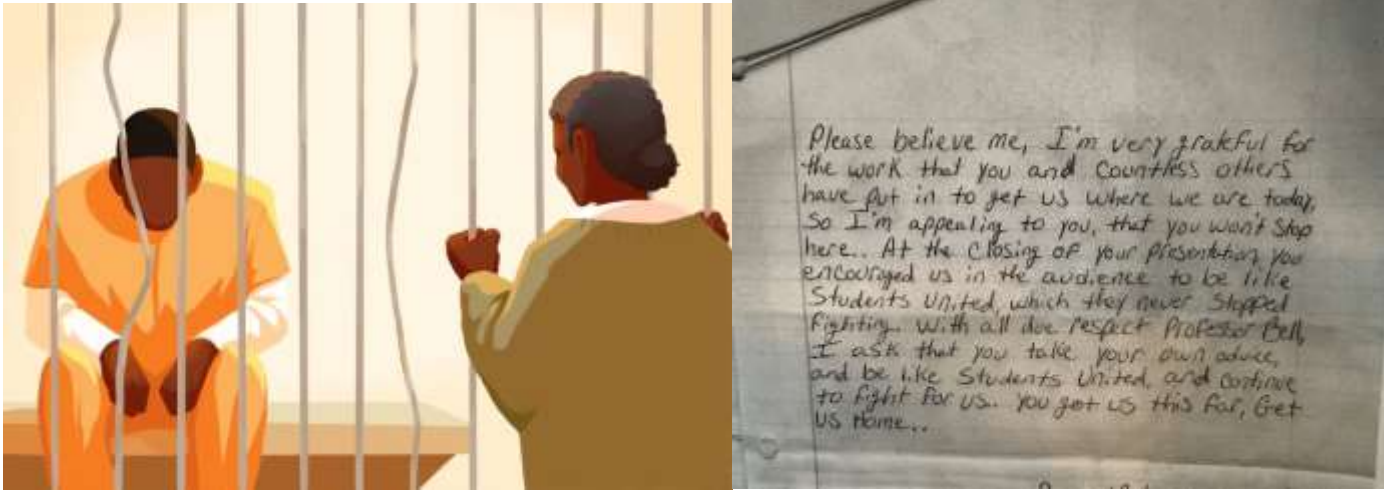 Please believe me, I'm very grateful for
the work that you and countless others
have put in to get us where we are today,
So I'm appealing to you, that you won't stop
here.. At the closing of your presentation, you
encouraged us in the audience to be like
Students United, which they never stopped
fighting. With all due respect Professor Bell,
I ask that you take your own advice,
and be like Students United, and continue
to fight for us.. You got us this far, Get
us Home..